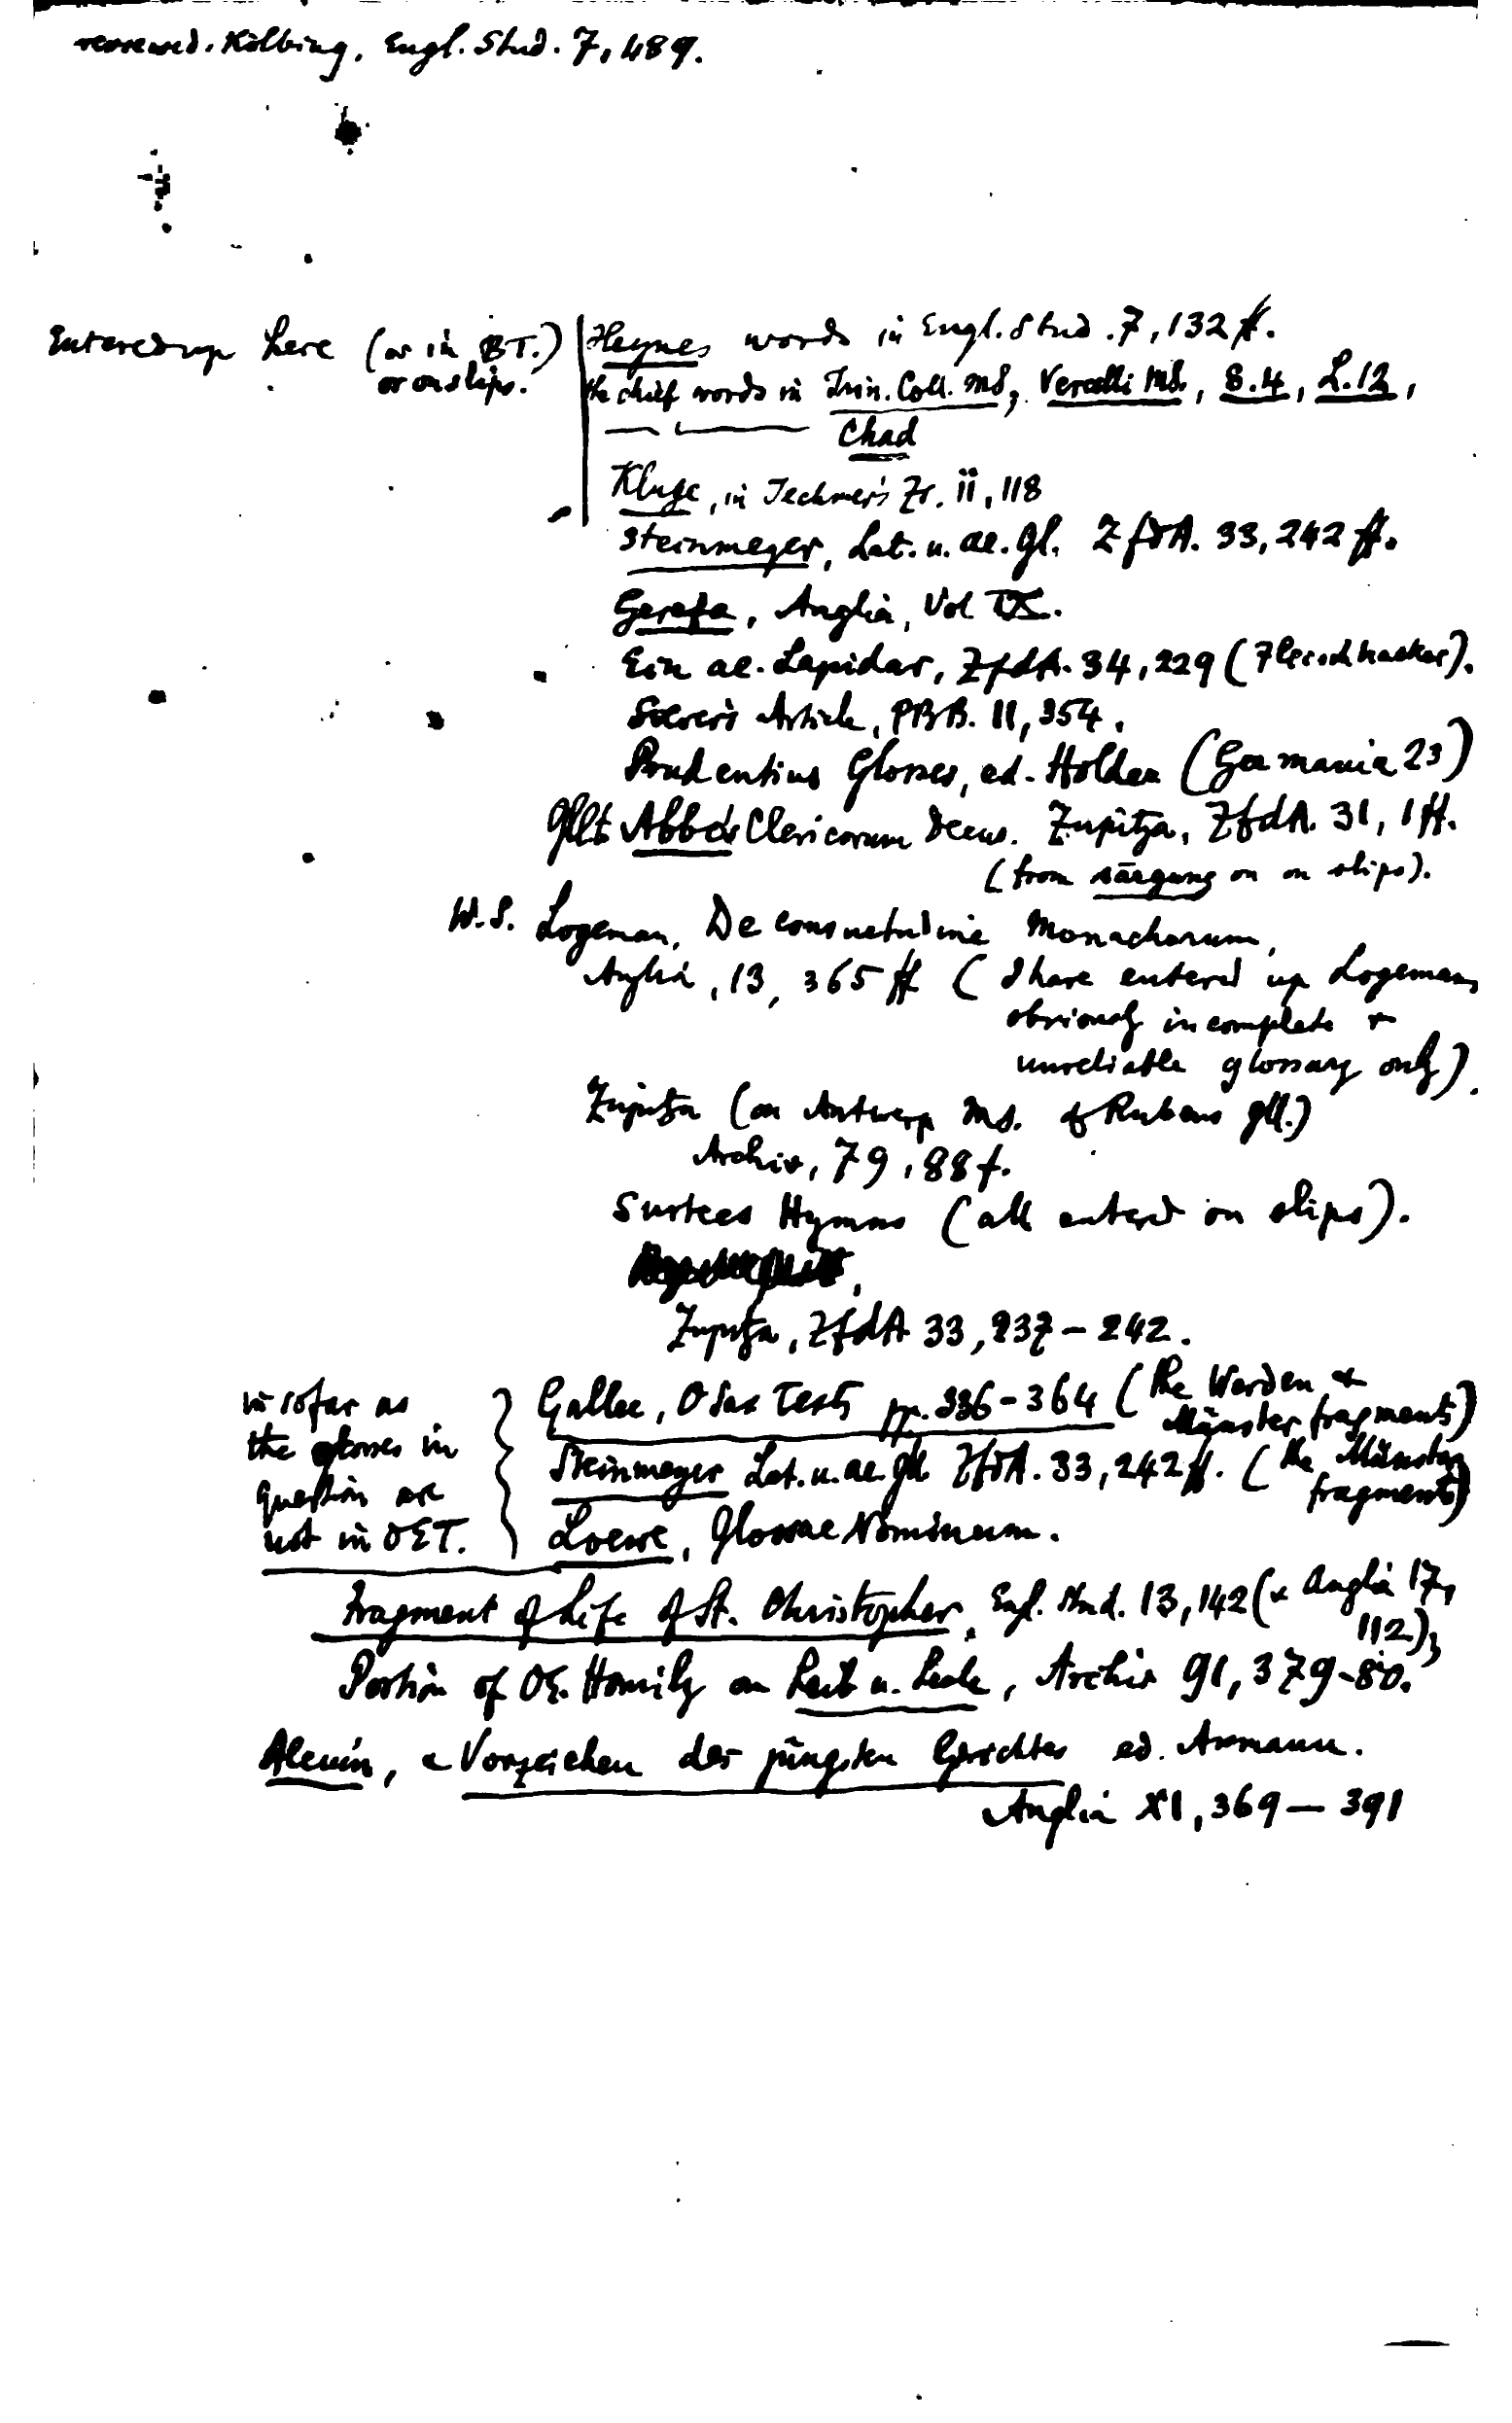 reviewed. Kölbing, Engl. Stud. 7, 489.
Entered up here (or in BT.) Heynes words in Engl. Stud. 7, 132 ff.
or on slips. the chief words in Trin. Coll. MS, Vercelli MS., S.4, L.12,
Chad
Kluge, in Techmer's Zs. ii, 118
Steinmeyer, Lat. u. ae. Gl. ZfdA. 33, 242 ff.
Gerefa, Anglia, Vol IX.
Ein ae. Lapidar, ZfdA. 34, 229 (Fleischhacker).
Sievers Article, PBB. 11, 354.
Prudentius Glosses, ed. Holder (Germania 23)
Abbo's Clericorum Decus. Zupitza, ZfdA. 31, 1 ff.
(from sārgung on on slips).
W.S. Logeman, De consuetudine Monachorum,
Anglia, 13, 365 ff (I have entered up Logeman
obviously incomplete &
unreliable glossary only).
Zupitza (on Antwerp MS. of Rubens gll.)
Archiv, 79, 88 f.
Surtees Hymns (all entered on slips).
Zupitza, ZfdA 33, 237-242.
in sofar as
the glosses in
question are
not in OET.
Gallee, O Sax Texts pp. 336-364 (the Werden &
Münster fragments)
Steinmeyer Lat. u. ae. gll. ZfdA. 33, 242 ff. (the Münster
fragments)
Loewe, Glossae Nominum.
Fragment of Life of St. Christopher, Engl. Stud. 13, 142 (& Anglia 17,
112.),
Portion of OE. Homily on Leib u. Seele, Archiv 91, 379-80.
Alcuin, & Vorzeichen des jüngsten Gerichtes ed. Assmann.
Anglia XI, 369 — 391